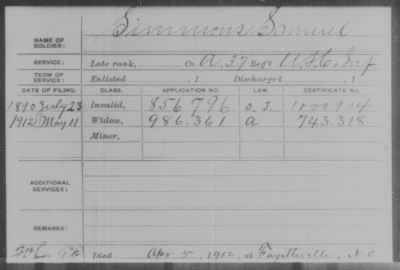 Simmons, Samuel
NAME OF SOLDIER:
SERVICE: Late rank, Co. A, 37 Reg't U.S.C. Inf
TERM OF SERVICE: Enlisted , 1 Discharged , 1
DATE OF FILING. CLASS. APPLICATION NO. LAW. CERTIFICATE NO.
1890 July 23 Invalid, 856.796
1912 May 11 Widow, 986.361 a 743.318
Minor,
ADDITIONAL SERVICES:
REMARKS:
Died Apr 5, 1912, at Fayetteville, N C